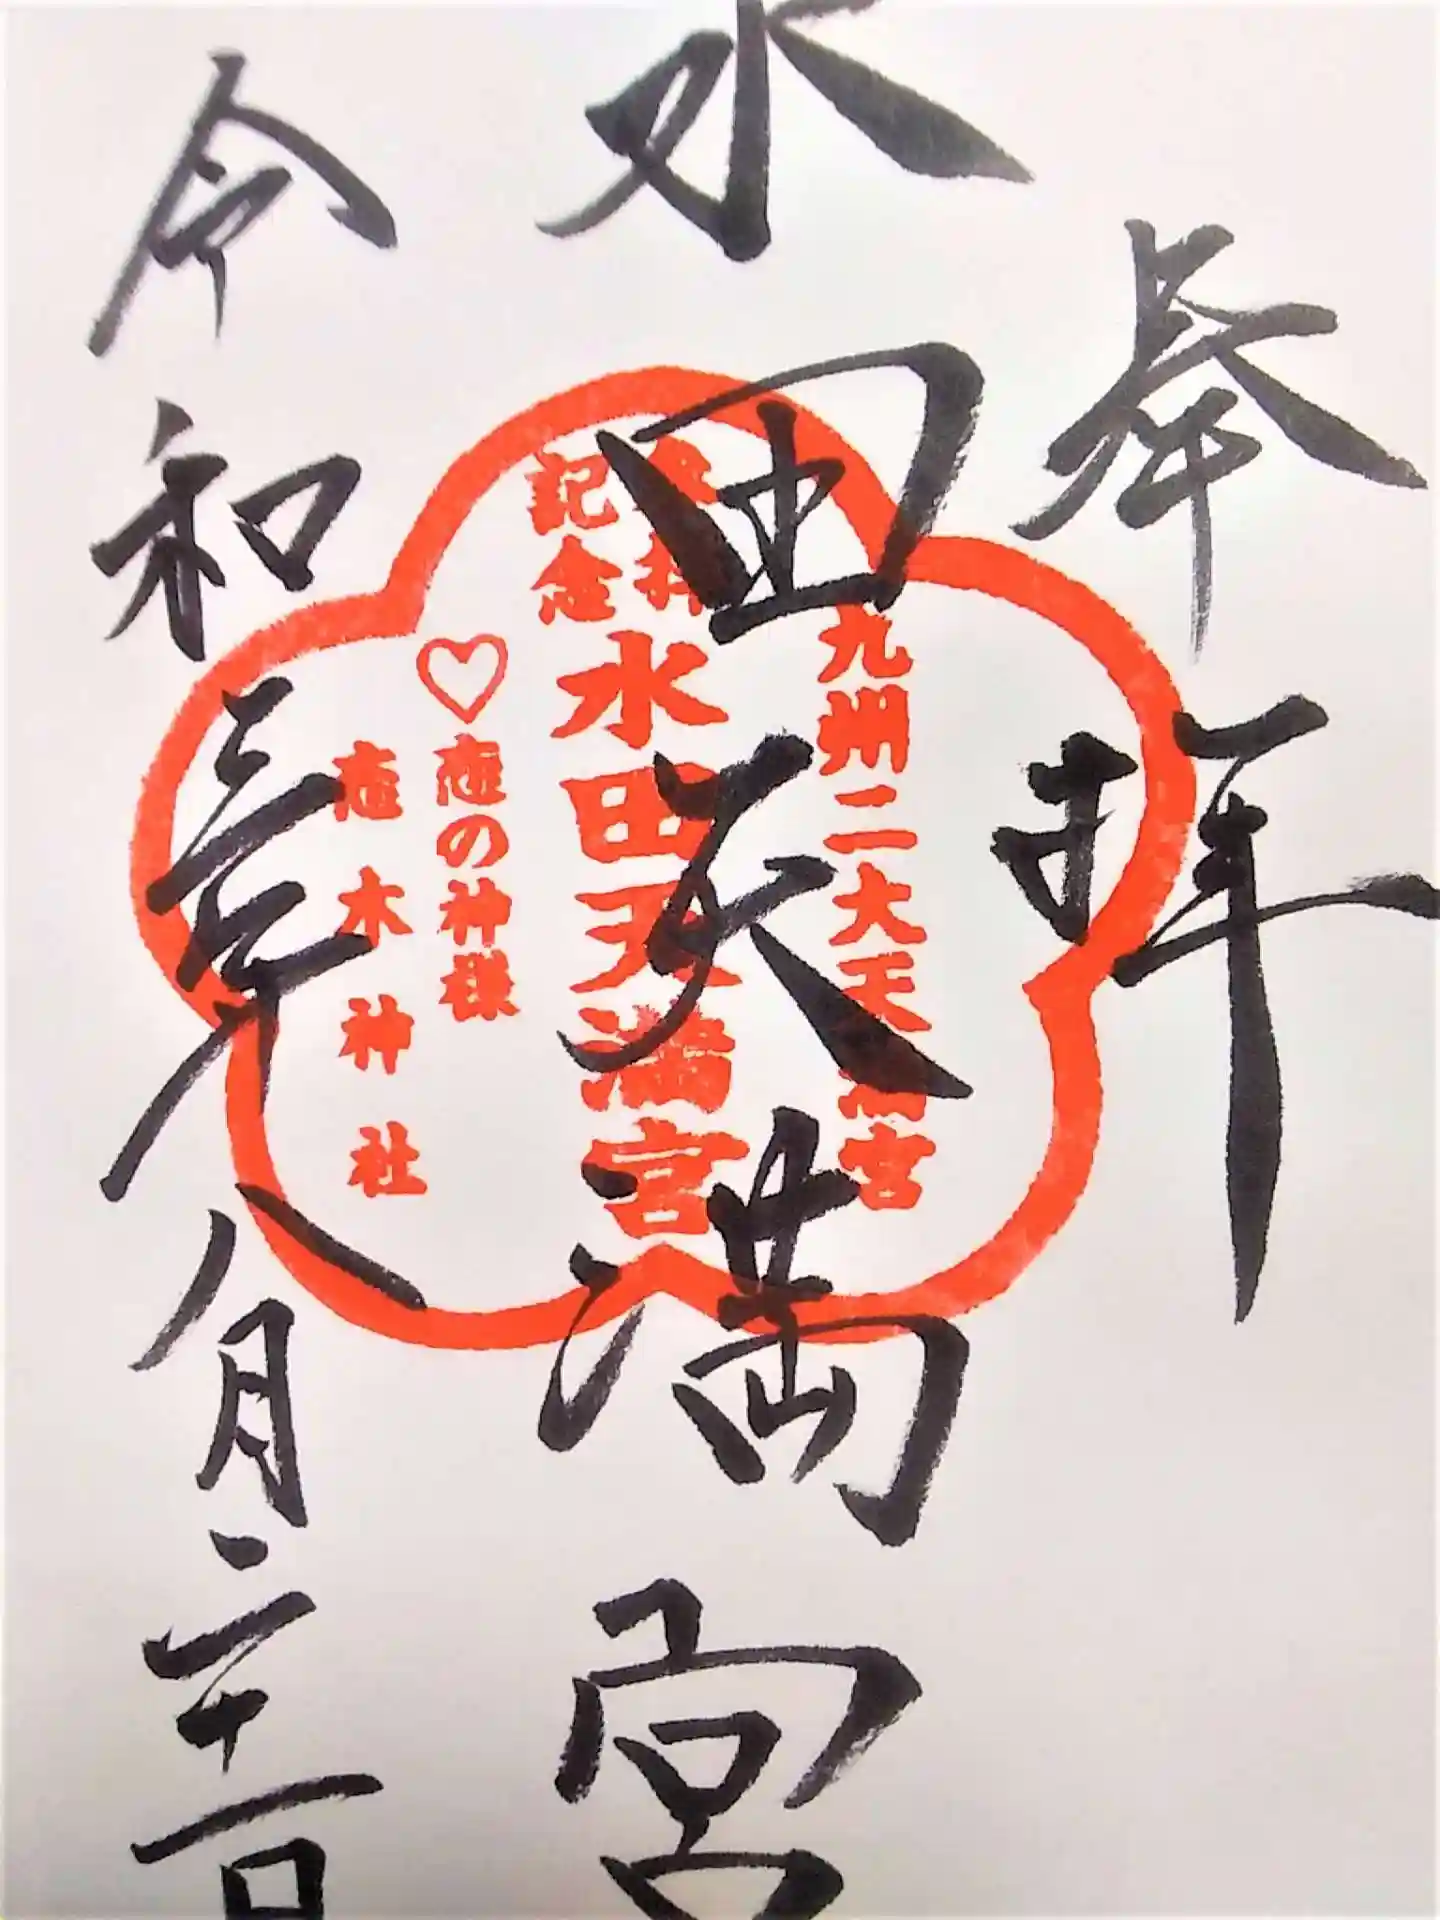 奉拝
水田天満宮
令和三年八月二十一日
九州二大天満宮
参拝
記念
水田天満宮
♡恋の神様
恋木神社